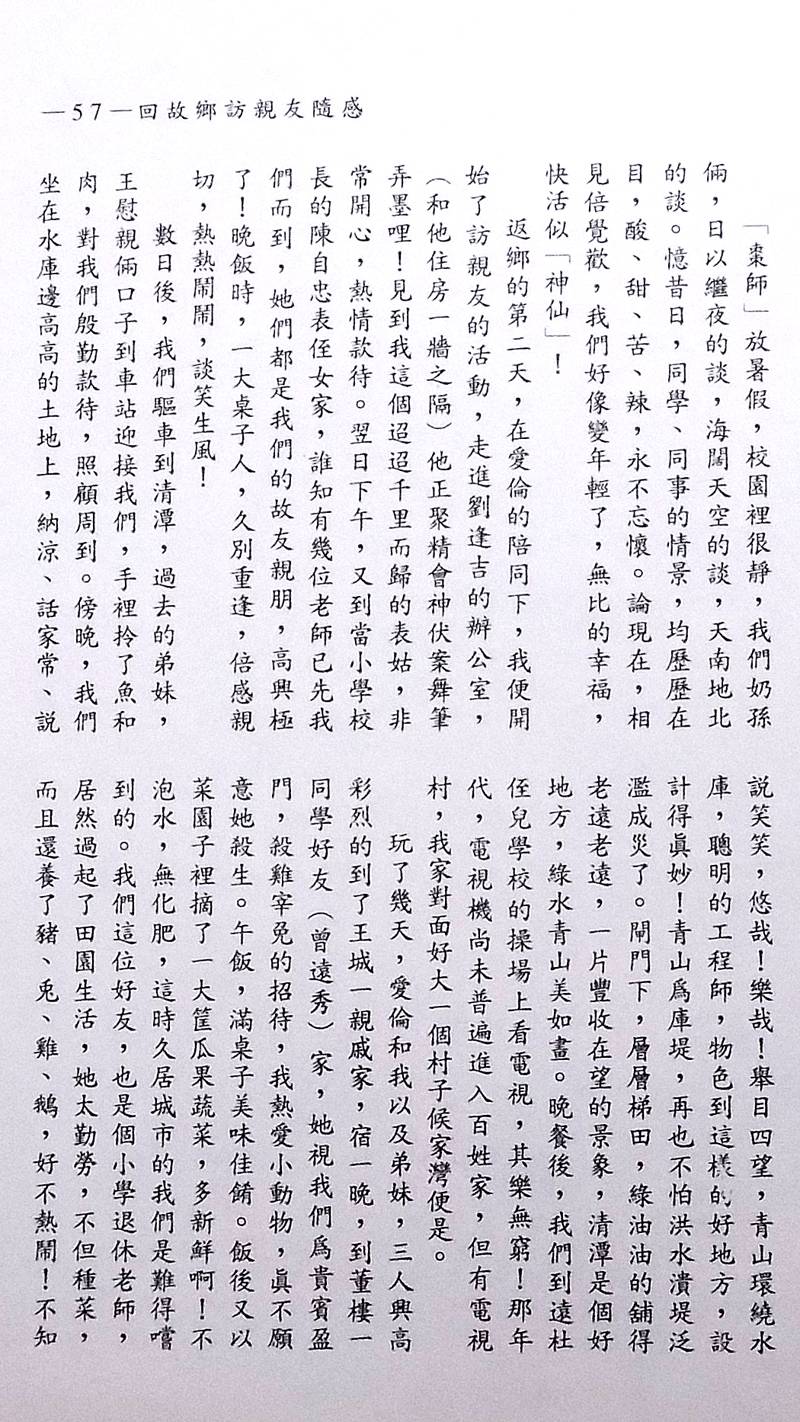 —57—回故鄉訪親友隨感
「棗師」放暑假，校園裡很靜，我們奶孫
倆，日以繼夜的談，海闊天空的談，天南地北
的談。憶昔日，同學、同事的情景，均歷歷在
目，酸、甜、苦、辣，永不忘懷。論現在，相
見倍覺歡，我們好像變年輕了，無比的幸福，
快活似「神仙」！
返鄉的第二天，在愛倫的陪同下，我便開
始了訪親友的活動，走進劉逢吉的辦公室，
（和他住房一牆之隔）他正聚精會神伏案舞筆
弄墨哩！見到我這個迢迢千里而歸的表姑，非
常開心，熱情款待。翌日下午，又到當小學校
長的陳自忠表侄女家，誰知有幾位老師已先我
們而到，她們都是我們的故友親朋，高興極
了！晚飯時，一大桌子人，久別重逢，倍感親
切，熱熱鬧鬧，談笑生風！
數日後，我們驅車到清潭，過去的弟妹，
王慰親倆口子到車站迎接我們，手裡拎了魚和
肉，對我們殷勤款待，照顧周到。傍晚，我們
坐在水庫邊高高的土地上，納涼、話家常、說
說笑笑，悠哉！樂哉！舉目四望，青山環繞水
庫，聰明的工程師，物色到這樣的好地方，設
計得眞妙！青山爲庫堤，再也不怕洪水潰堤泛
濫成災了。閘門下，層層梯田，綠油油的舖得
老遠老遠，一片豐收在望的景象，清潭是個好
地方，綠水青山美如畫。晚餐後，我們到遠杜
侄兒學校的操場上看電視，其樂無窮！那年
代，電視機尚未普遍進入百姓家，但有電視
村，我家對面好大一個村子候家灣便是。
玩了幾天，愛倫和我以及弟妹，三人興高
彩烈的到了王城一親戚家，宿一晚，到董樓一
同學好友（曾遠秀）家，她視我們爲貴賓盈
門，殺雞宰兔的招待，我熱愛小動物，眞不願
意她殺生。午飯，滿桌子美味佳餚。飯後又以
菜園子裡摘了一大筐瓜果蔬菜，多新鮮啊！不
泡水，無化肥，這時久居城市的我們是難得嚐
到的。我們這位好友，也是個小學退休老師，
居然過起了田園生活，她太勤勞，不但種菜，
而且還養了豬、兎、雞、鵝，好不熱鬧！不知